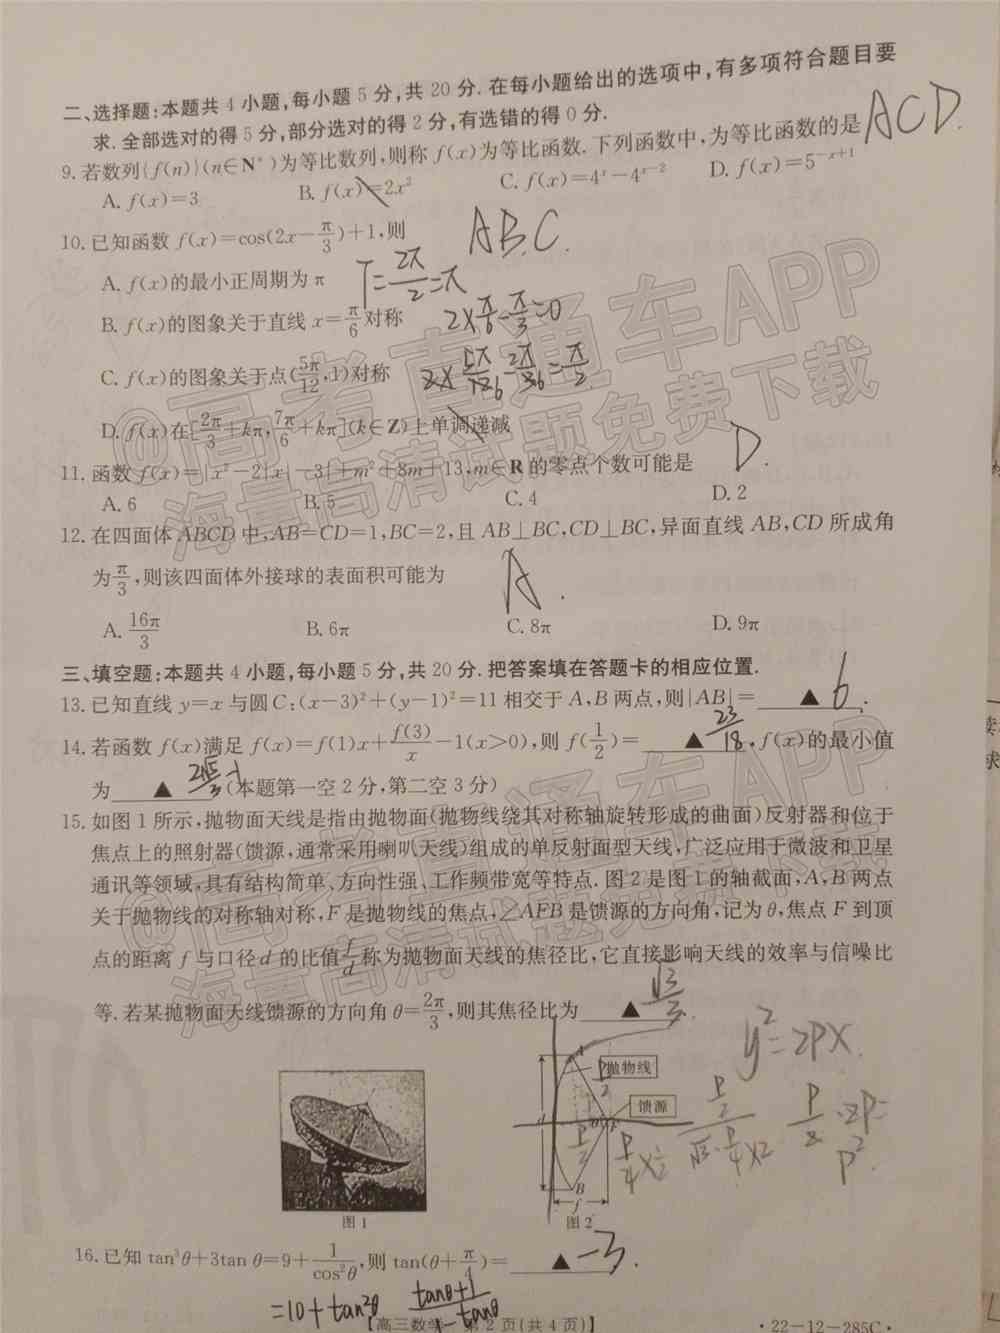 二、选择题:本题共 4 小题,每小题 5 分,共 20 分.在每小题给出的选项中,有多项符合题目要
求.全部选对的得 5 分,部分选对的得 2 分,有选错的得 0 分.
9.若数列{f(n)}(n∈N*)为等比数列,则称 f(x)为等比函数.下列函数中,为等比函数的是 ACD.
A. f(x)=3 B. f(x)=2x² C. f(x)=4ˣ-4ˣ⁻² D. f(x)=5⁻ˣ⁺¹
10.已知函数 f(x)=cos(2x-π/3)+1,则 ABC.
A. f(x)的最小正周期为 π T=2π/2=π
B. f(x)的图象关于直线 x=π/6对称 2×π/6-π/3=0
C. f(x)的图象关于点(5π/12,1)对称
D. f(x)在[2π/3+kπ,7π/6+kπ](k∈Z)上单调递减
11.函数 f(x)=|x²-2|x|-3|+m²+8m+13,m∈R 的零点个数可能是 D.
A. 6 B. 5 C. 4 D. 2
12.在四面体 ABCD 中,AB=CD=1,BC=2,且 AB⊥BC,CD⊥BC,异面直线 AB,CD 所成角
为π/3,则该四面体外接球的表面积可能为 A.
A. 16π/3 B. 6π C. 8π D. 9π
三、填空题:本题共 4 小题,每小题 5 分,共 20 分.把答案填在答题卡的相应位置.
13.已知直线 y=x 与圆 C:(x-3)²+(y-1)²=11 相交于 A,B 两点,则|AB|= ▲ 6 .
14.若函数 f(x)满足 f(x)=f(1)x+f(3)/x-1(x>0),则 f(1/2)= ▲ 23/18 ,f(x)的最小值
为 ▲ .(本题第一空 2 分,第二空 3 分)
15.如图 1 所示,抛物面天线是指由抛物面(抛物线绕其对称轴旋转形成的曲面)反射器和位于
焦点上的照射器(馈源,通常采用喇叭天线)组成的单反射面型天线,广泛应用于微波和卫星
通讯等领域,具有结构简单、方向性强、工作频带宽等特点.图 2 是图 1 的轴截面,A,B 两点
关于抛物线的对称轴对称,F 是抛物线的焦点,∠AFB 是馈源的方向角,记为 θ,焦点 F 到顶
点的距离 f 与口径 d 的比值f/d称为抛物面天线的焦径比,它直接影响天线的效率与信噪比
等.若某抛物面天线馈源的方向角 θ=2π/3,则其焦径比为 ▲ √3/3 .
y²=2px.
A
抛物线
馈源
d
F
B
f
图 1 图 2
16.已知 tan³θ+3tan θ=9+1/cos²θ,则 tan(θ+π/4)= ▲ -3 .
=10+tan²θ tanθ+1/1-tanθ
【高三数学 第 2 页(共 4 页)】 ·22-12-285C·
@高考直通车APP
海量高清试题免费下载
@高考直通车APP
海量高清试题免费下载